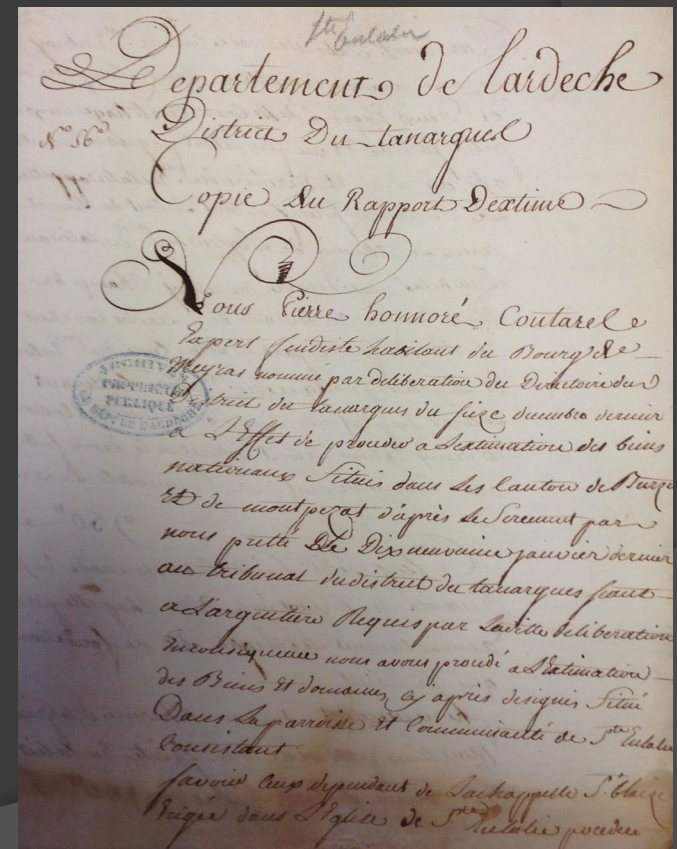 Ste Eulalie
Departement de lardeche
District Du tanargues
N.º 56º
Copie Du Rapport Dextime
Nous Pierre honnoré Coutarel
Expert feudiste habitant du Bourg de
Meyras nommé par deliberation du Directoire du
District du tanargues du seize decembre dernier
a L'Effet de proceder a L'extimation des biens
nationaux Situés dans Les Canton de Burzet
Et de montpezat d'après Le Serement par
nous pretté Le Dixneuvieme janvier dernier
au tribunal du district du tanargues seant
a Largentiere Requis par Laditte deliberation
En consequence nous avons procedé a L'Extimation
des Biens Et domaines cy après designés Situé
Dans La parroisse et Communauté de Ste Eulalie
Consistant
Savoir Ceux dependant de La chappelle St blaize
Erigée dans L'Eglise de Ste Eulalie
ARCHIVES
PROPRIÉTÉ
PUBLIQUE